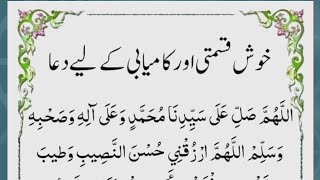 خوش قسمتی اور کامیابی کے لیے دعا
اللَّهُمَّ صَلِّ عَلَى سَيِّدِنَا مُحَمَّدٍ وَعَلَى آلِهِ وَصَحْبِهِ
وَسَلِّمْ اللَّهُمَّ ارْزُقْنِي حُسْنَ النَّصِيبِ وَطِيبَ